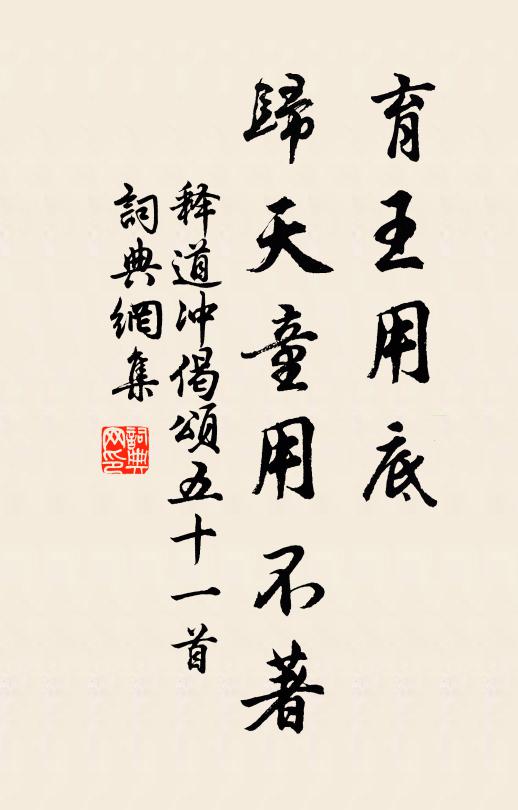 育王用底
歸天童用不著
释道冲偈頌五十一首
詞典網集
詞典
网印